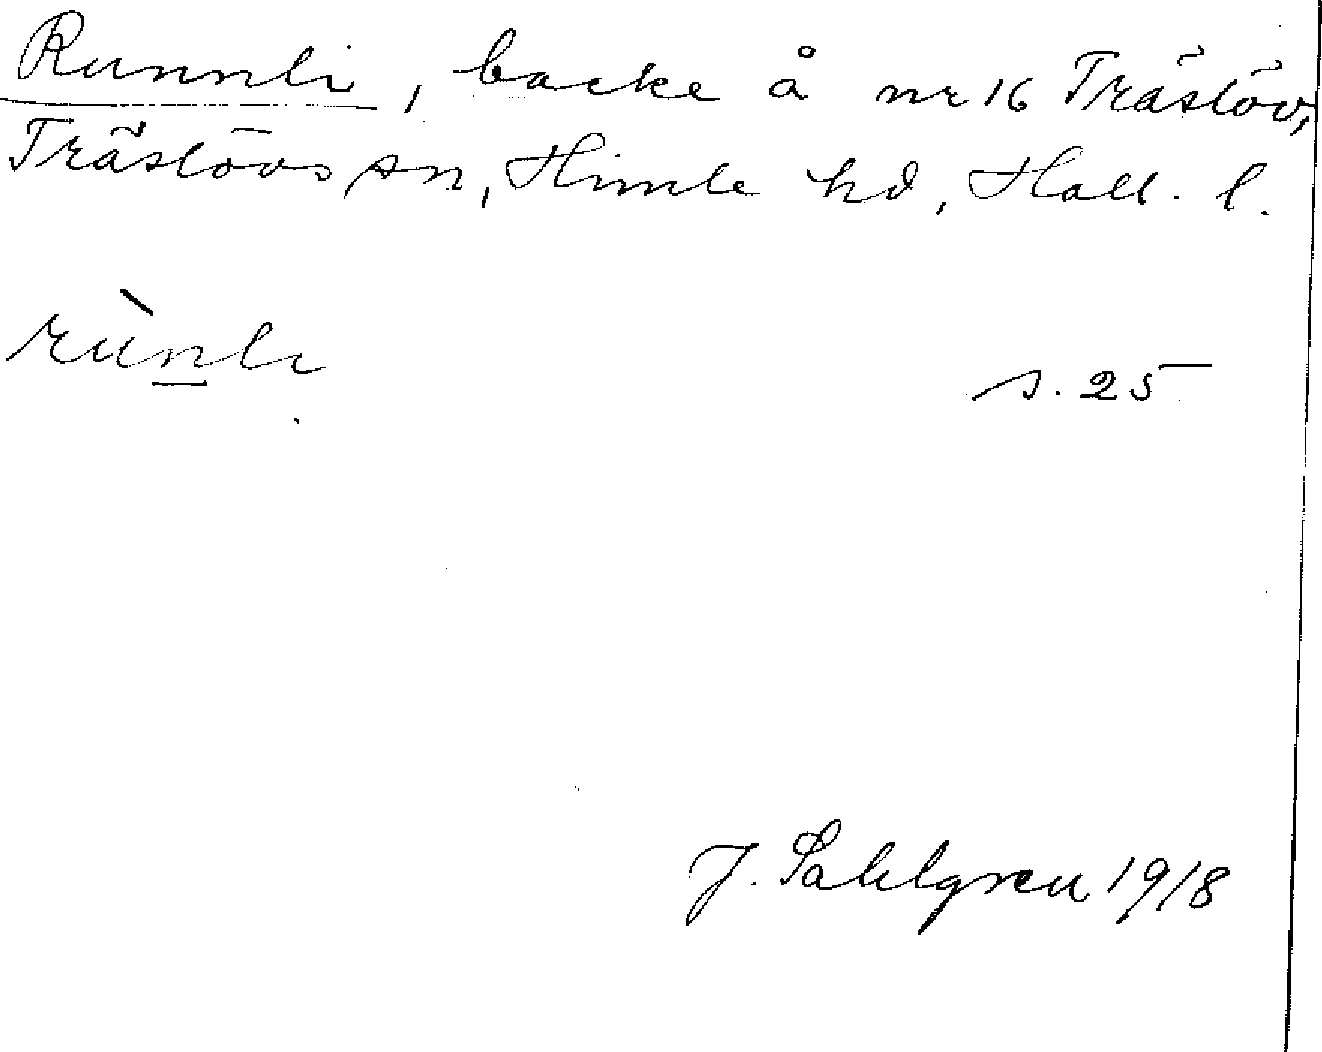 Runnli, backe å nr 16 Träslöv,
Träslövs sn, Himle hd, Hall. l.
rùnli
s. 25
J. Sahlgren 1918